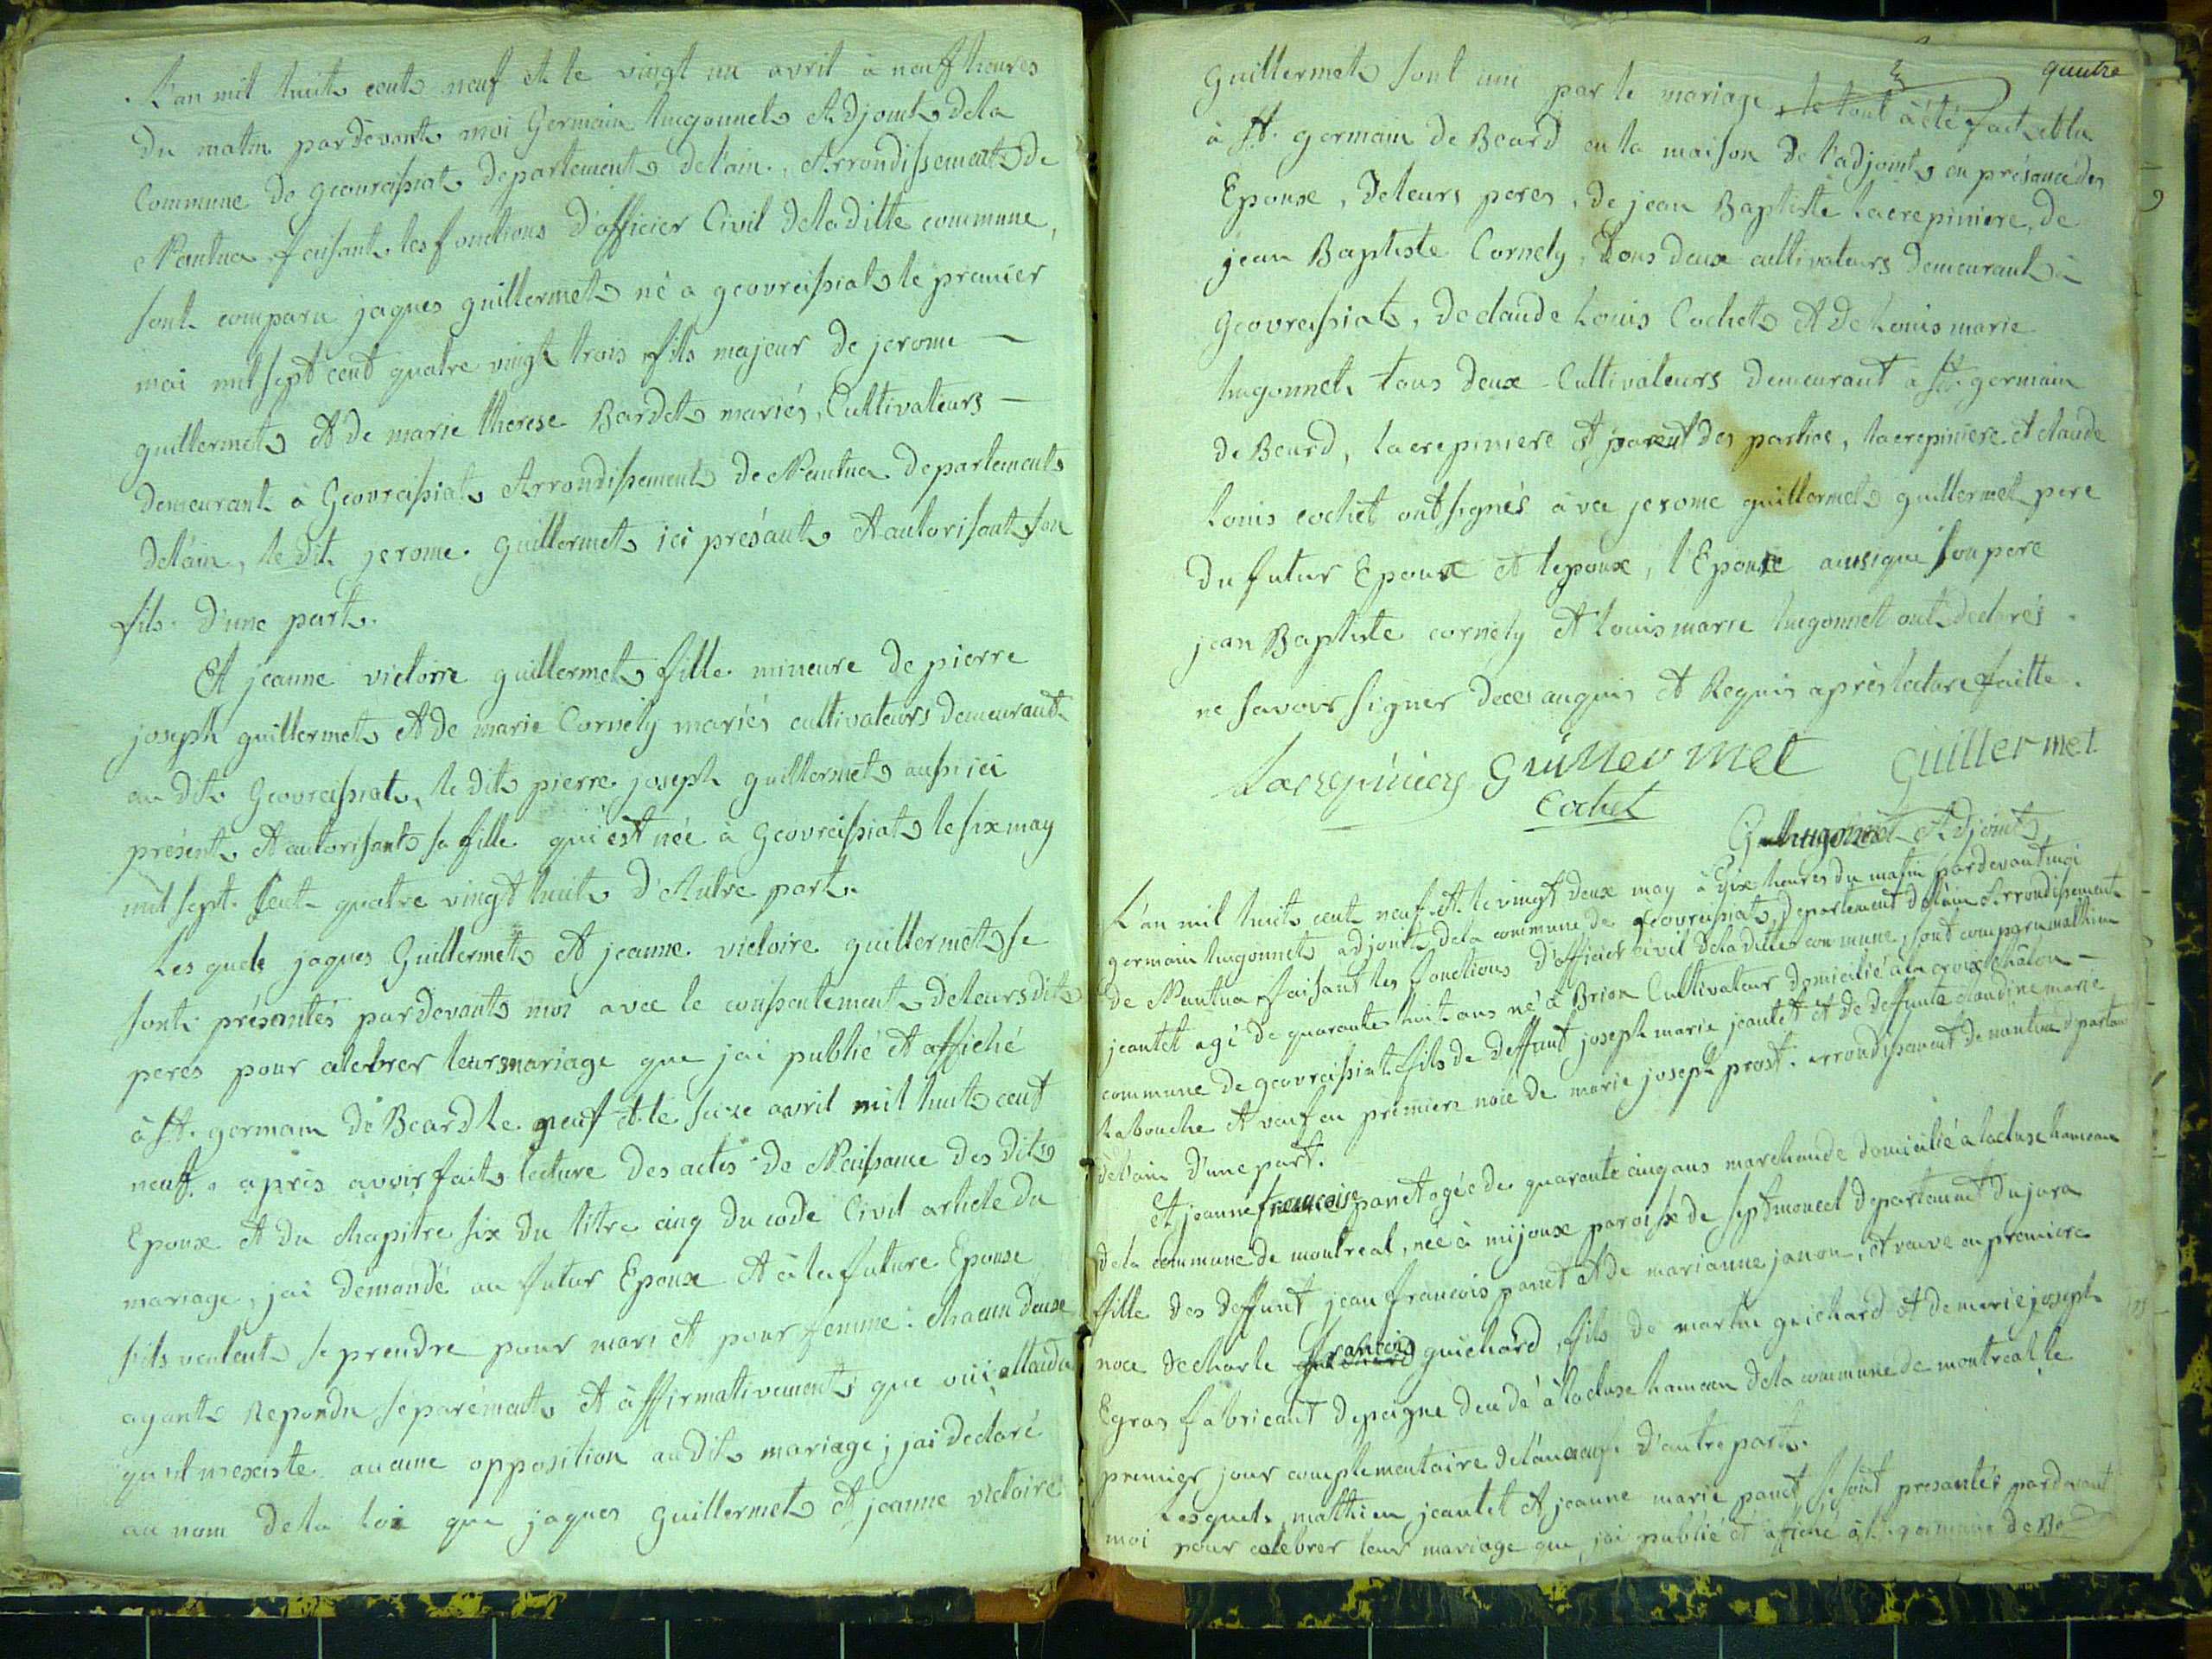 L'an mil huit cent neuf et le vingt un avril à neuf heures
du matin pardevant moi Germain hugonnet Adjoint dela
Commune de geovreissiat departement delain, Arrondissement de
Nantua faisant les fonctions d'officier Civil deladitte commune,
sont comparu jaques guillermet né a geovreissiat le premier
mai mil sept cent quatre vingt trois fils majeur de jerome —
guillermet et de marie therese Bardet mariés, Cultivateurs —
demeurant à Geovreissiat Arrondissement de Nantua departement
delain, le dit jerome guillermet ici présant et autorisant son
fils d'une part.
Et jeanne victoire guillermet fille mineure de pierre
joseph guillermet et de marie Cornély mariés cultivateurs demeurant
au dit Geovreissiat, le dit pierre joseph guillermet aussi ici
présent et autorisant sa fille qui est née à Geovreissiat le six may
mil sept cent quatre vingt huit d'Autre part.
Lesquels jaques Guillermet et jeanne victoire guillermet se
sont présentés pardevant moi avec le consentement de leurs dit
peres pour celebrer leurs mariage que jai publié et affiché
à St. germain de Beard le neuf et le seize avril mil huit cent
neuf. après avoir fait lecture des actes de Naissance des dits
Epoux et du chapitre six du titre cinq du code Civil article du
mariage, jai demandé au futur Epoux et à la future Epouse
sils veulent se prendre pour mari et pour femme: chacun deux
ayant Repondu séparément et affirmativement que oui attendu
qu'il nexiste aucune opposition audit mariage; jai declaré
au nom dela loi que jaques guillermet et jeanne victoire
quatre
Guillermet sont uni par le mariage, le tout à été fait et lu
à St. germain de Beard en la maison de l'adjoint en présence des
Epoux, de leurs peres, de jean Baptiste Lacrepiniere, de
jean Baptiste Cornely, tous deux cultivateurs demeurant à
Geovreissiat, de claude Louis Cochet et de Louis marie
hugonnet tous deux Cultivateurs demeurant à St. germain
de Beard, lacrepiniere et parent des parties, lacrepiniere et claude
Louis cochet ont signés avec jerome guillermet guillermet pere
du futur Epoux et lepoux, l'Epouse ainsi que son pere
jean Baptiste cornély et Louis marie hugonnet ont declarés
ne savoir signer de ces anquis et Requis après lecture faitte.
Lacrepiniere Guillermet Guillermet
Cochet
G hugonnet Adjoint
L'an mil huit cent neuf et le vingt deux may à dix heures du matin pardevant moi
germain hugonnet adjoint dela commune de geovreissiat, departement delain Arrondissement
de Nantua faisant les fonctions d'officier civil deladitte commune, sont comparu mathieu
jeantet agé de quarante huit ans né à Brion Cultivateur domicilié àla croix chalon —
commune de geovreissiat fils de deffunt joseph marie jeantet et de deffunte claudine marie
Labouche et veuf en premiere noce de marie joseph prost. arrondissement de nantua departement
delain d'une part.
Et jeanne francoise panet agée de quarante cinq ans marchande domicilié a lacluse hameau
dela commune de montreal, née à mijoux paroisse de septmoncel departement du jura
fille des deffunt jean francois panet et de marianne janon, et veuve en premiere
noce de charle francois guichard, fils de martin guichard et de marie joseph
Egras fabricant de peigne decedé à lacluse hameau dela commune de montreal le
premier jour complementaire delan neuf d'autre part.
Lesquels mathieu jeantet et jeanne marie panet se sont presantés pardevant
moi pour celebrer leur mariage que jai publié et affiché à St. germain de Be